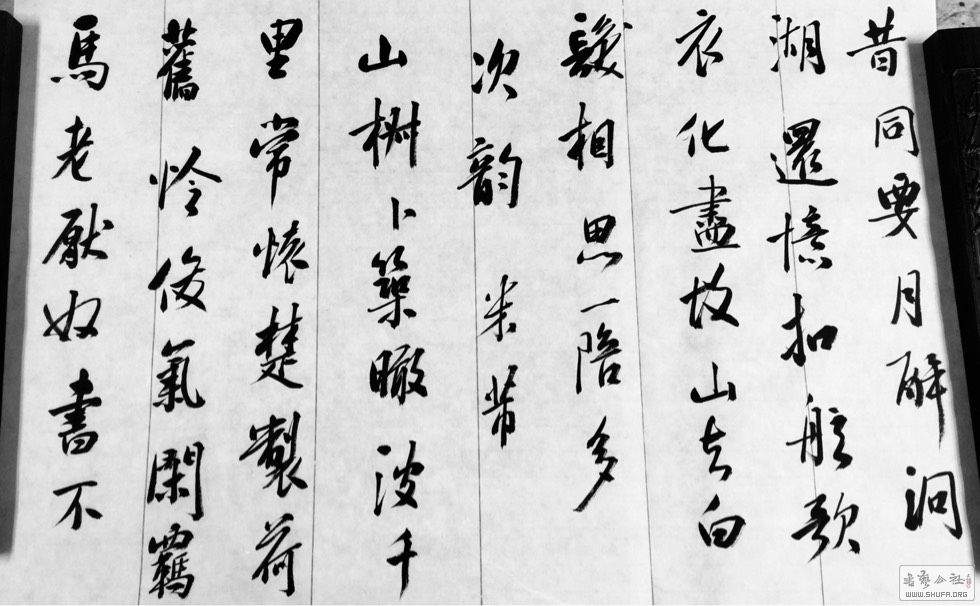 昔同要月醉洞
湖還憶扣舷歌
衣化盡故山去白
髮相思一陪多
次韵 米芾
山樹卜築瞰波千
里常懷楚製荷
舊怜俊氣閑羈
馬老厭奴書不
書藝公社
WWW.SHUFA.ORG